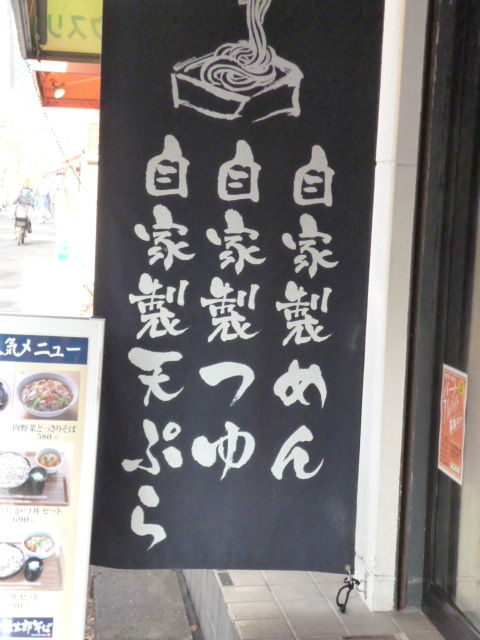 自家製めん
自家製つゆ
自家製天ぷら
気メニュー
肉野菜どっさりそば
580
かつ丼セット
690
セット
そば